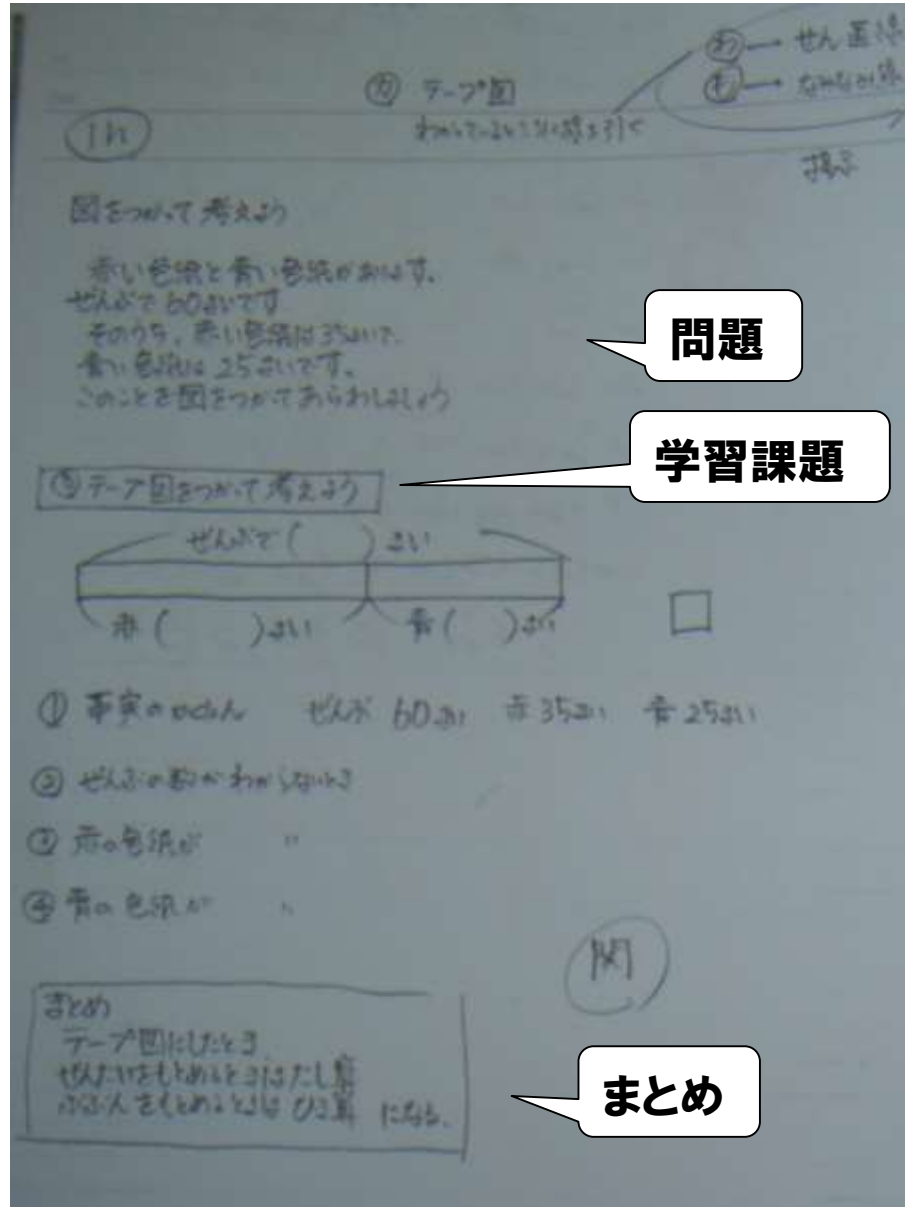 ㋕ テープ図
㋻→ せん 直線
㋲→ なみなみ線
1h
わかっているところに線を引く
掲示
図をつかって考えよう
赤い色紙と青い色紙があります。
ぜんぶで60まいです
そのうち、赤い色紙は35まいで、
青い色紙は25まいです。
このことを図をつかってあらわしましょう
問題
学習課題
テープ図をつかって考えよう
ぜんぶで( )まい
赤( )まい 青( )まい
□
① 事実のかくにん ぜんぶ 60まい 赤35まい 青25まい
② ぜんぶの数がわからないとき
③ 赤の色紙が 〃
④ 青の色紙が 〃
関
まとめ
テープ図にしたとき
ぜんたいをもとめるときはたし算
ぶぶんをもとめるときは ひき算 になる。
まとめ